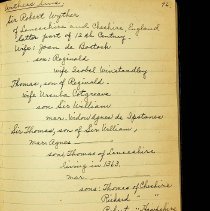 Withers Line.
76
Sir Robert Wyther
of Lancashire and Cheshire, England
latter part of 12th Century.
Wife: Joan de Bostock
son: Reginald
wife Isobel Winstandley
Thomas, son of Reginald.
wife Ursula Cotgreave
son Sir William
mar. widow Agnes de Spstones
Sir Thomas, son of Sir William,
mar. Agnes
son: Thomas of Lancashire
living in 1363.
mar.
sons: Thomas of Cheshire
Richard "
Robert "